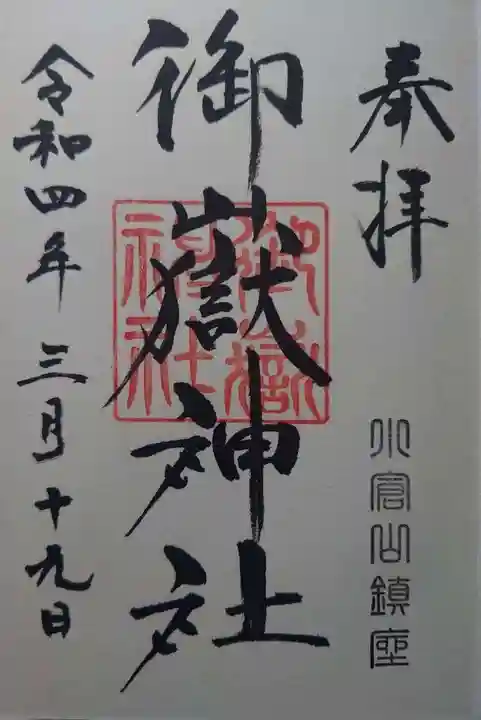 奉拝
小倉山鎮座
御嶽神社
御嶽
神社
令和四年三月十九日